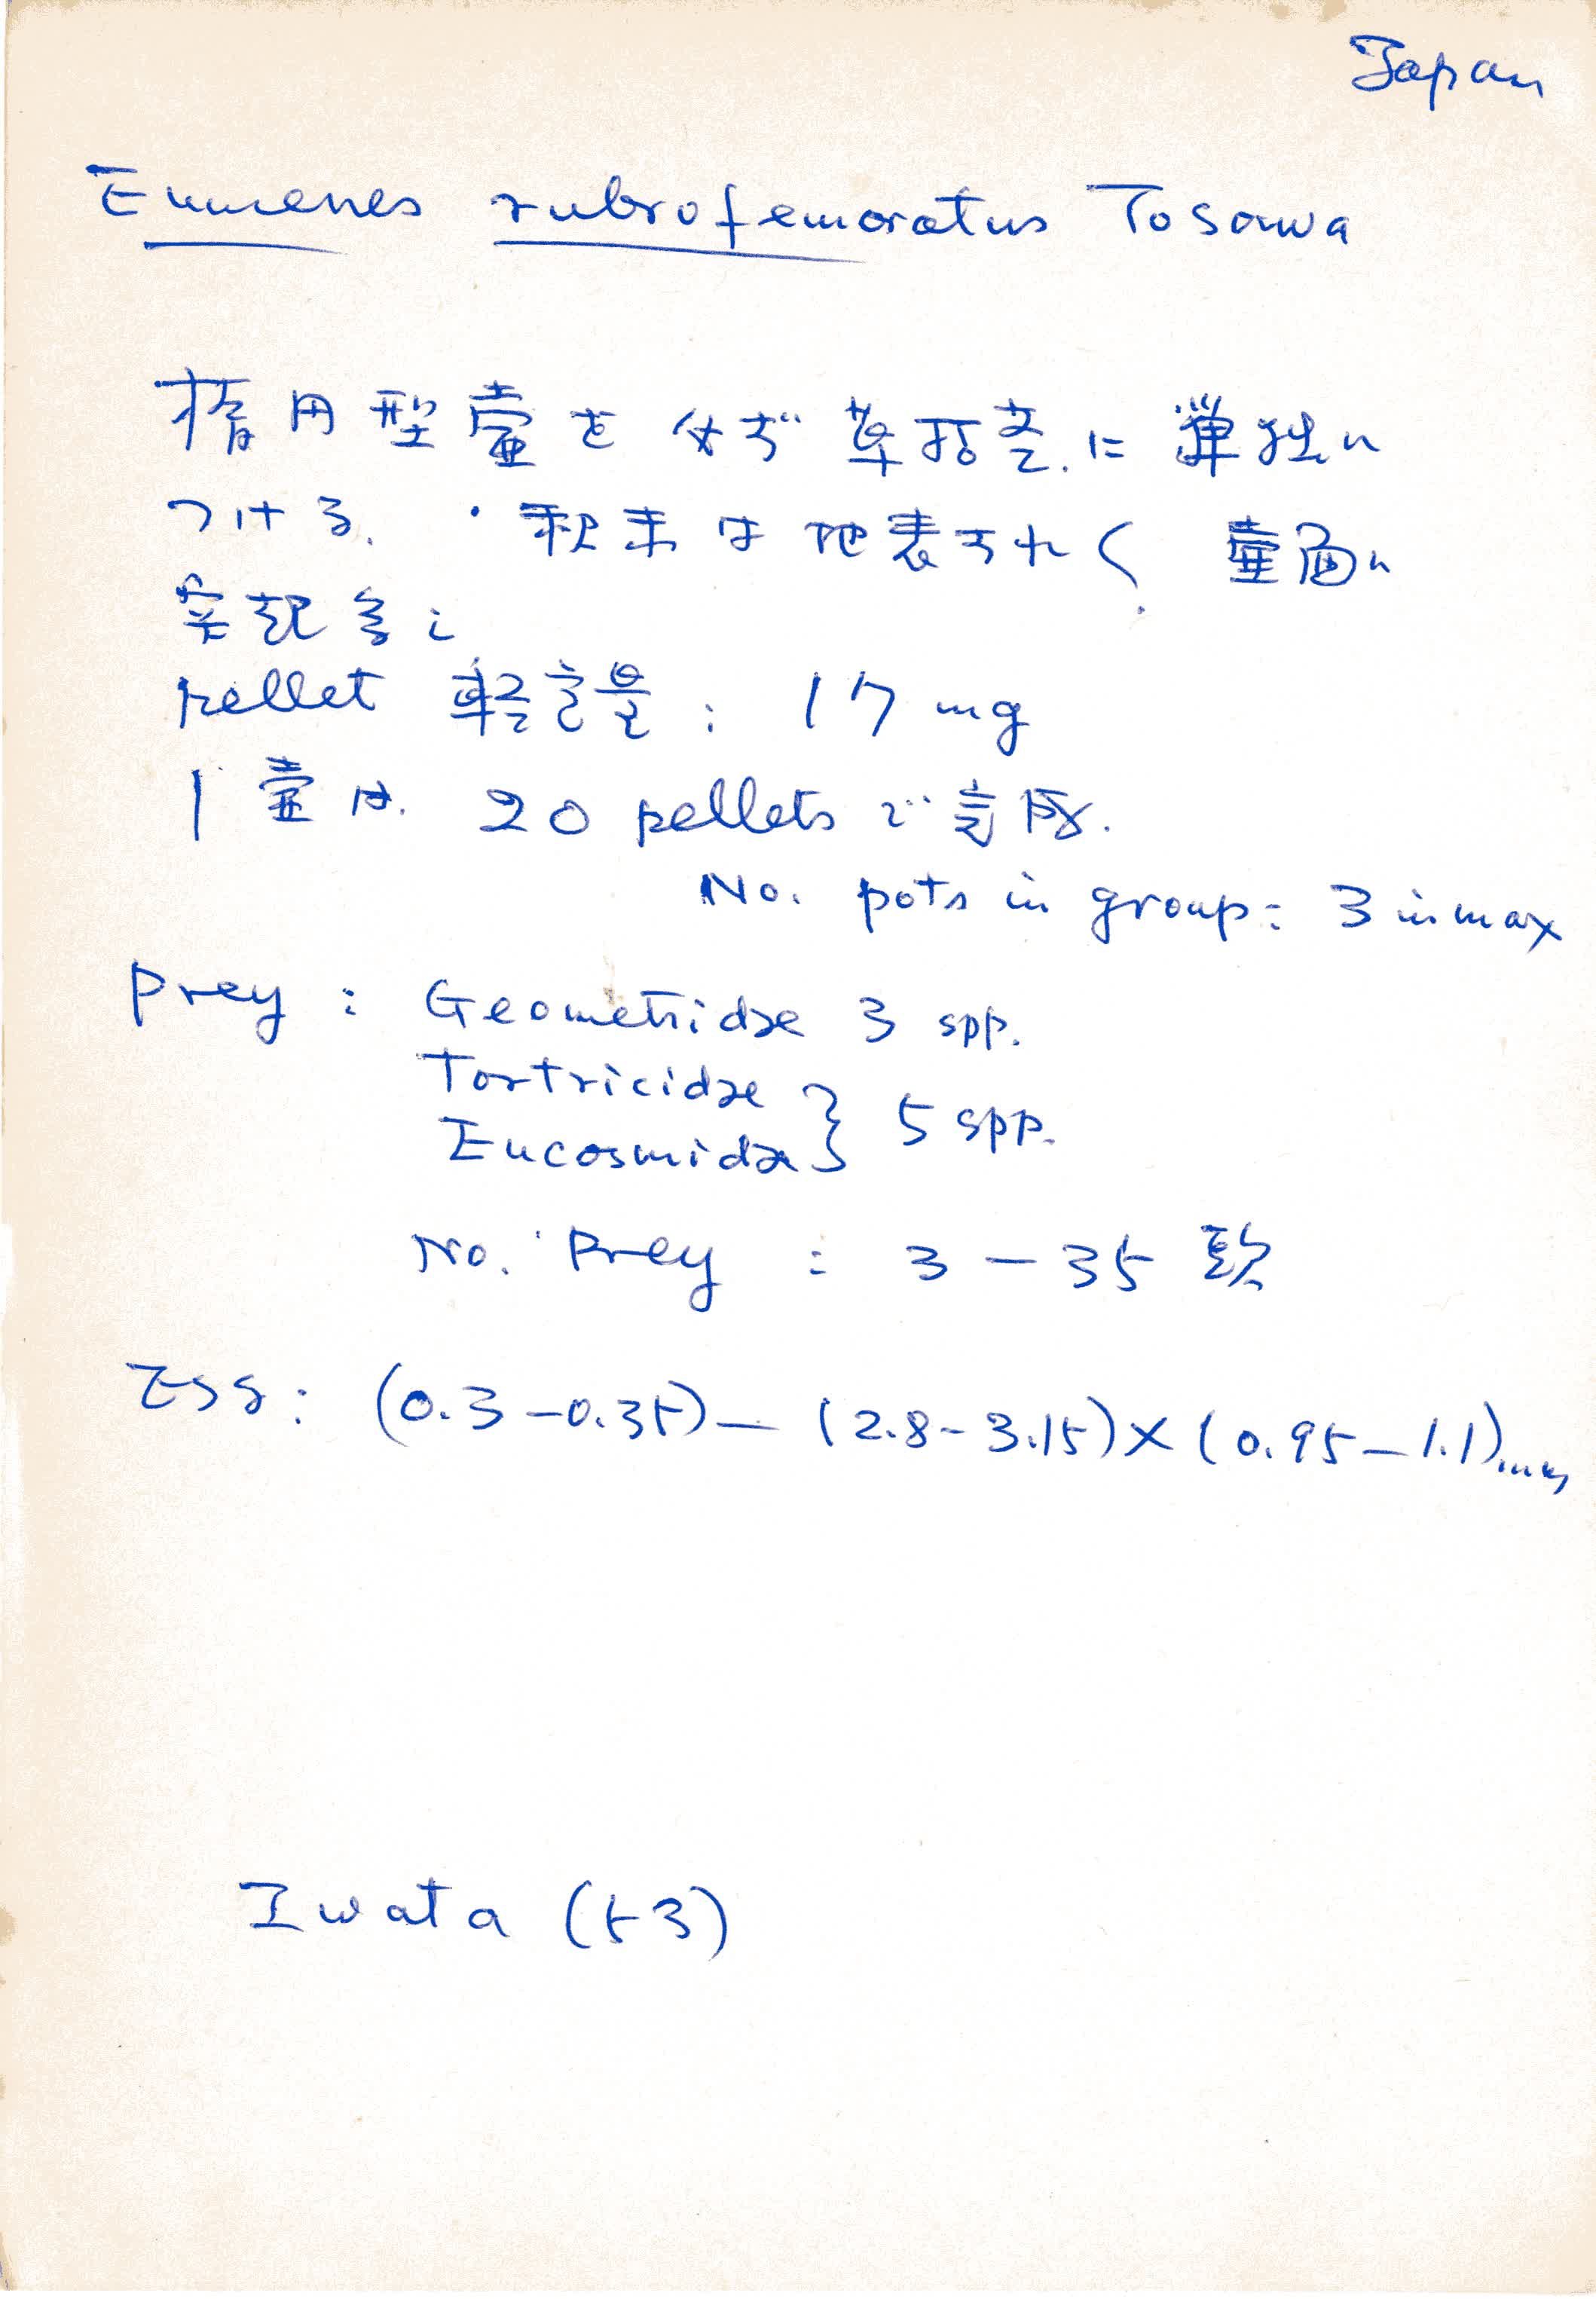 Japan
Eumenes rubrofemoratus Tosawa
楕円型壷を 草 に 単独に
つける. ・ は地表 壷面に
突起多し
pellet 軽重量 : 17 mg
1壷は. 20 pellets で完成.
No. pots in group : 3 in max
Prey : Geometridae 3 spp.
Tortricidae
Eucosmidae } 5 spp.
No. Prey : 3 - 35 頭
Egg : (0.3 - 0.35) - (2.8 - 3.15) × (0.95 - 1.1) mm
Iwata (53)